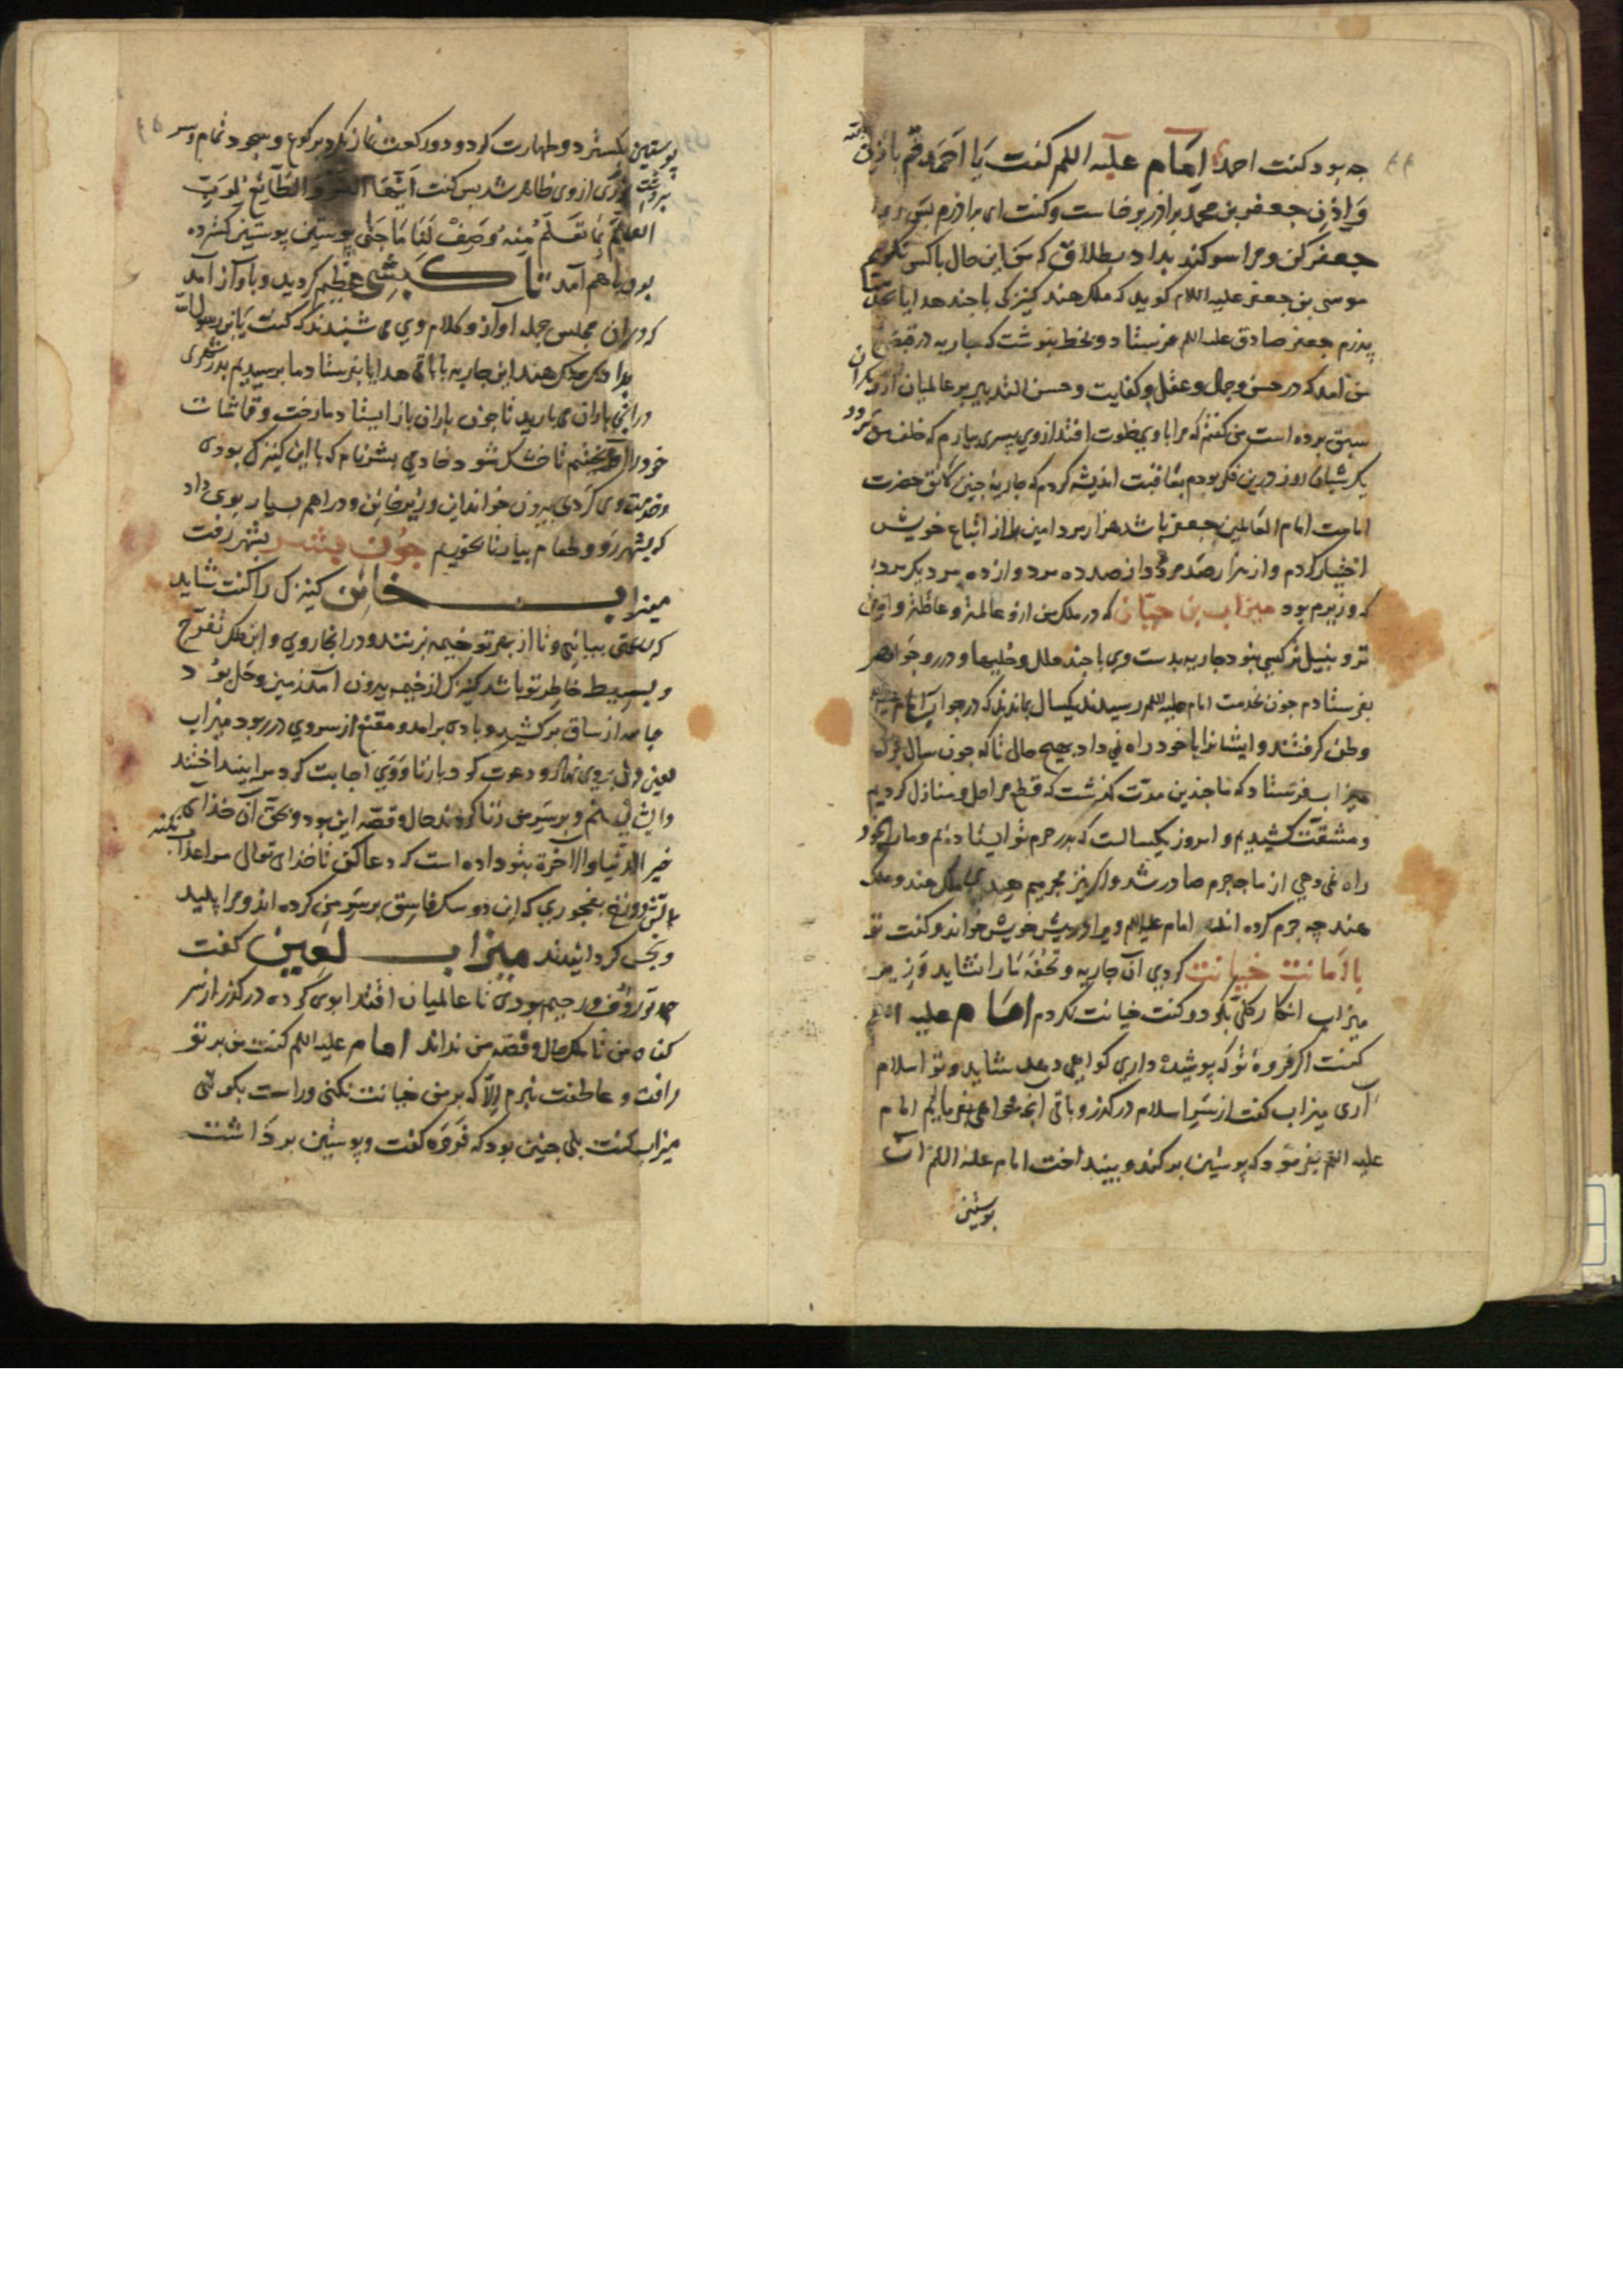 چه بود گفت احمد امام علیه السلم گفت یا احمد قم باذن الله
و اذن جعفر بن محمد برادر برخاست و گفت ای برادرم
جعفر کن و مرا سوگند بداد بطلاق که من این حال با کس نگویم
موسی بن جعفر علیه السلام گوید که ملک هند کنیزکی با چند هدایا
پدرم جعفر صادق علیه السلم فرستاد و بخط بنوشت که جاریه در قبضه
من آمد که در حسن و جمال و عقل و کفایت و حسن التدبیر بر عالمیان
سبق برده است من گفتم که مرا با وی خلوت افتد از وی پسری بیارم که خلف من
یک شبان روز درین فکر بودم بعاقبت اندیشه کردم که جاریه چنین لائق حضرت
امامت امام العالمین جعفر باشد هزار مرد امین را از اتباع خویش
اختیار کردم و از هزار صد مرد و از صد ده مرد و از ده مرد یک مرد
که وزیرم بود میزاب بن حبان که در ملک من ازو عالمتر و عاقلتر و امین
تر و بنیل تر کسی نبود جاریه بدست وی با چند حلل و حلیها و درر و جواهر
بفرستادم چون بخدمت امام علیه السلم رسیدند یکسال بماندند که در جوار امام
وطن گرفتند و ایشانرا با خود راه نمی داد بهیچ حال تا که چون سال
میزاب فرستاد که تا چندین مدت گذشت که قطع مراحل و منازل کردیم
و مشقت کشیدیم و امروز یکسالست که بدر حرم تو ایستاده ایم و مارا بخود
راه نمی دهی از ما چه جرم صادر شد و اگر نیز مجرمیم ملک هند و ملک
هند چه جرم کرده اند امام علیه السلم ویرا در پیش خویش خواند و گفت تو
با امانت خیانت کردی آن جاریه و تحفه ما را نشاید وزیر
میزاب انکار کلی بکرد و گفت خیانت نکردم امام علیه السلم
گفت اگر فروه تو که پوشیده داری گواهی دهد شاید و تو اسلام
آری میزاب گفت از سر اسلام درگذر و باقی آنچه خواهی بفرمای امام
علیه السلم بفرمود که پوستین برکند و بینداخت امام علیه السلم آن
پوستین
پوستین بگسترد و طهارت کرد و دو رکعت نماز بکرد برکوع و سجود تمام و سر
برداشت نوری از وی ظاهر شد پس گفت ایتها الفرو الطائع لرب
العالمین بما تعلم منه و صف لنا ما جنی پوستین پوستین گسترده
بود باهم آمد تا کبشی عظیم گردید و باواز آمد
که دران مجلس جمله آواز و کلام وی می شنیدند که گفت یابن رسول الله
بدان که ملک هند این جاریه با باقی هدایا بفرستاد ما برسیدیم بدر شهری
در انجا باران می بارید تا چون باران باز ایستاد ما رخت و قماشات
خود را آویختیم تا خشک شود خادمی بشر نام که با این کنیزک بودی
و خدمت وی کردی بیرون خواند این وزیر خائن و دراهم بسیار بوی داد
که بشهر رو و طعام بیار تا بخوریم چون بشر بشهر رفت
میزاب خائن کنیزک را گفت شاید
که ساعتی بیائی و تا از بهر تو خیمه بزنند و در انجا روی و این ملک تفرج
و بسیط خاطر تو باشد کنیزک از خیمه بیرون آمد زمین وحل بود
جامه از ساق برکشید و بادی برامد و مقنع از سر وی در ربود میزاب
لعین دل بروی نهاد و دعوت کرد با زنا و وی اجابت کرد مرا بینداختند
و ایشان بهم و بر سر من زنا کردند حال و قصه این بود و بحق آن خدای که
خیر الدنیا و الاخرة بتو داده است که دعا کن تا خدای تعالی مرا عذاب نکند
بآتش دوزخ بفجوری که این دو سک فاسق بر سر من کرده اند و مرا پلید
و نجس کردانیدند میزاب لعین گفت
چو تو رؤف و رحیم بودی تا عالمیان اقتدا بوی کرده درگذر از سر
گناه من تا ملک حال و قصه من نداند امام علیه السلم گفت من بر تو
رافت و عاطفت نبرم الا که بر من خیانت نکنی و راست بگوئی
میزاب گفت بلی چنین بود که فروه گفت و پوستین برداشت